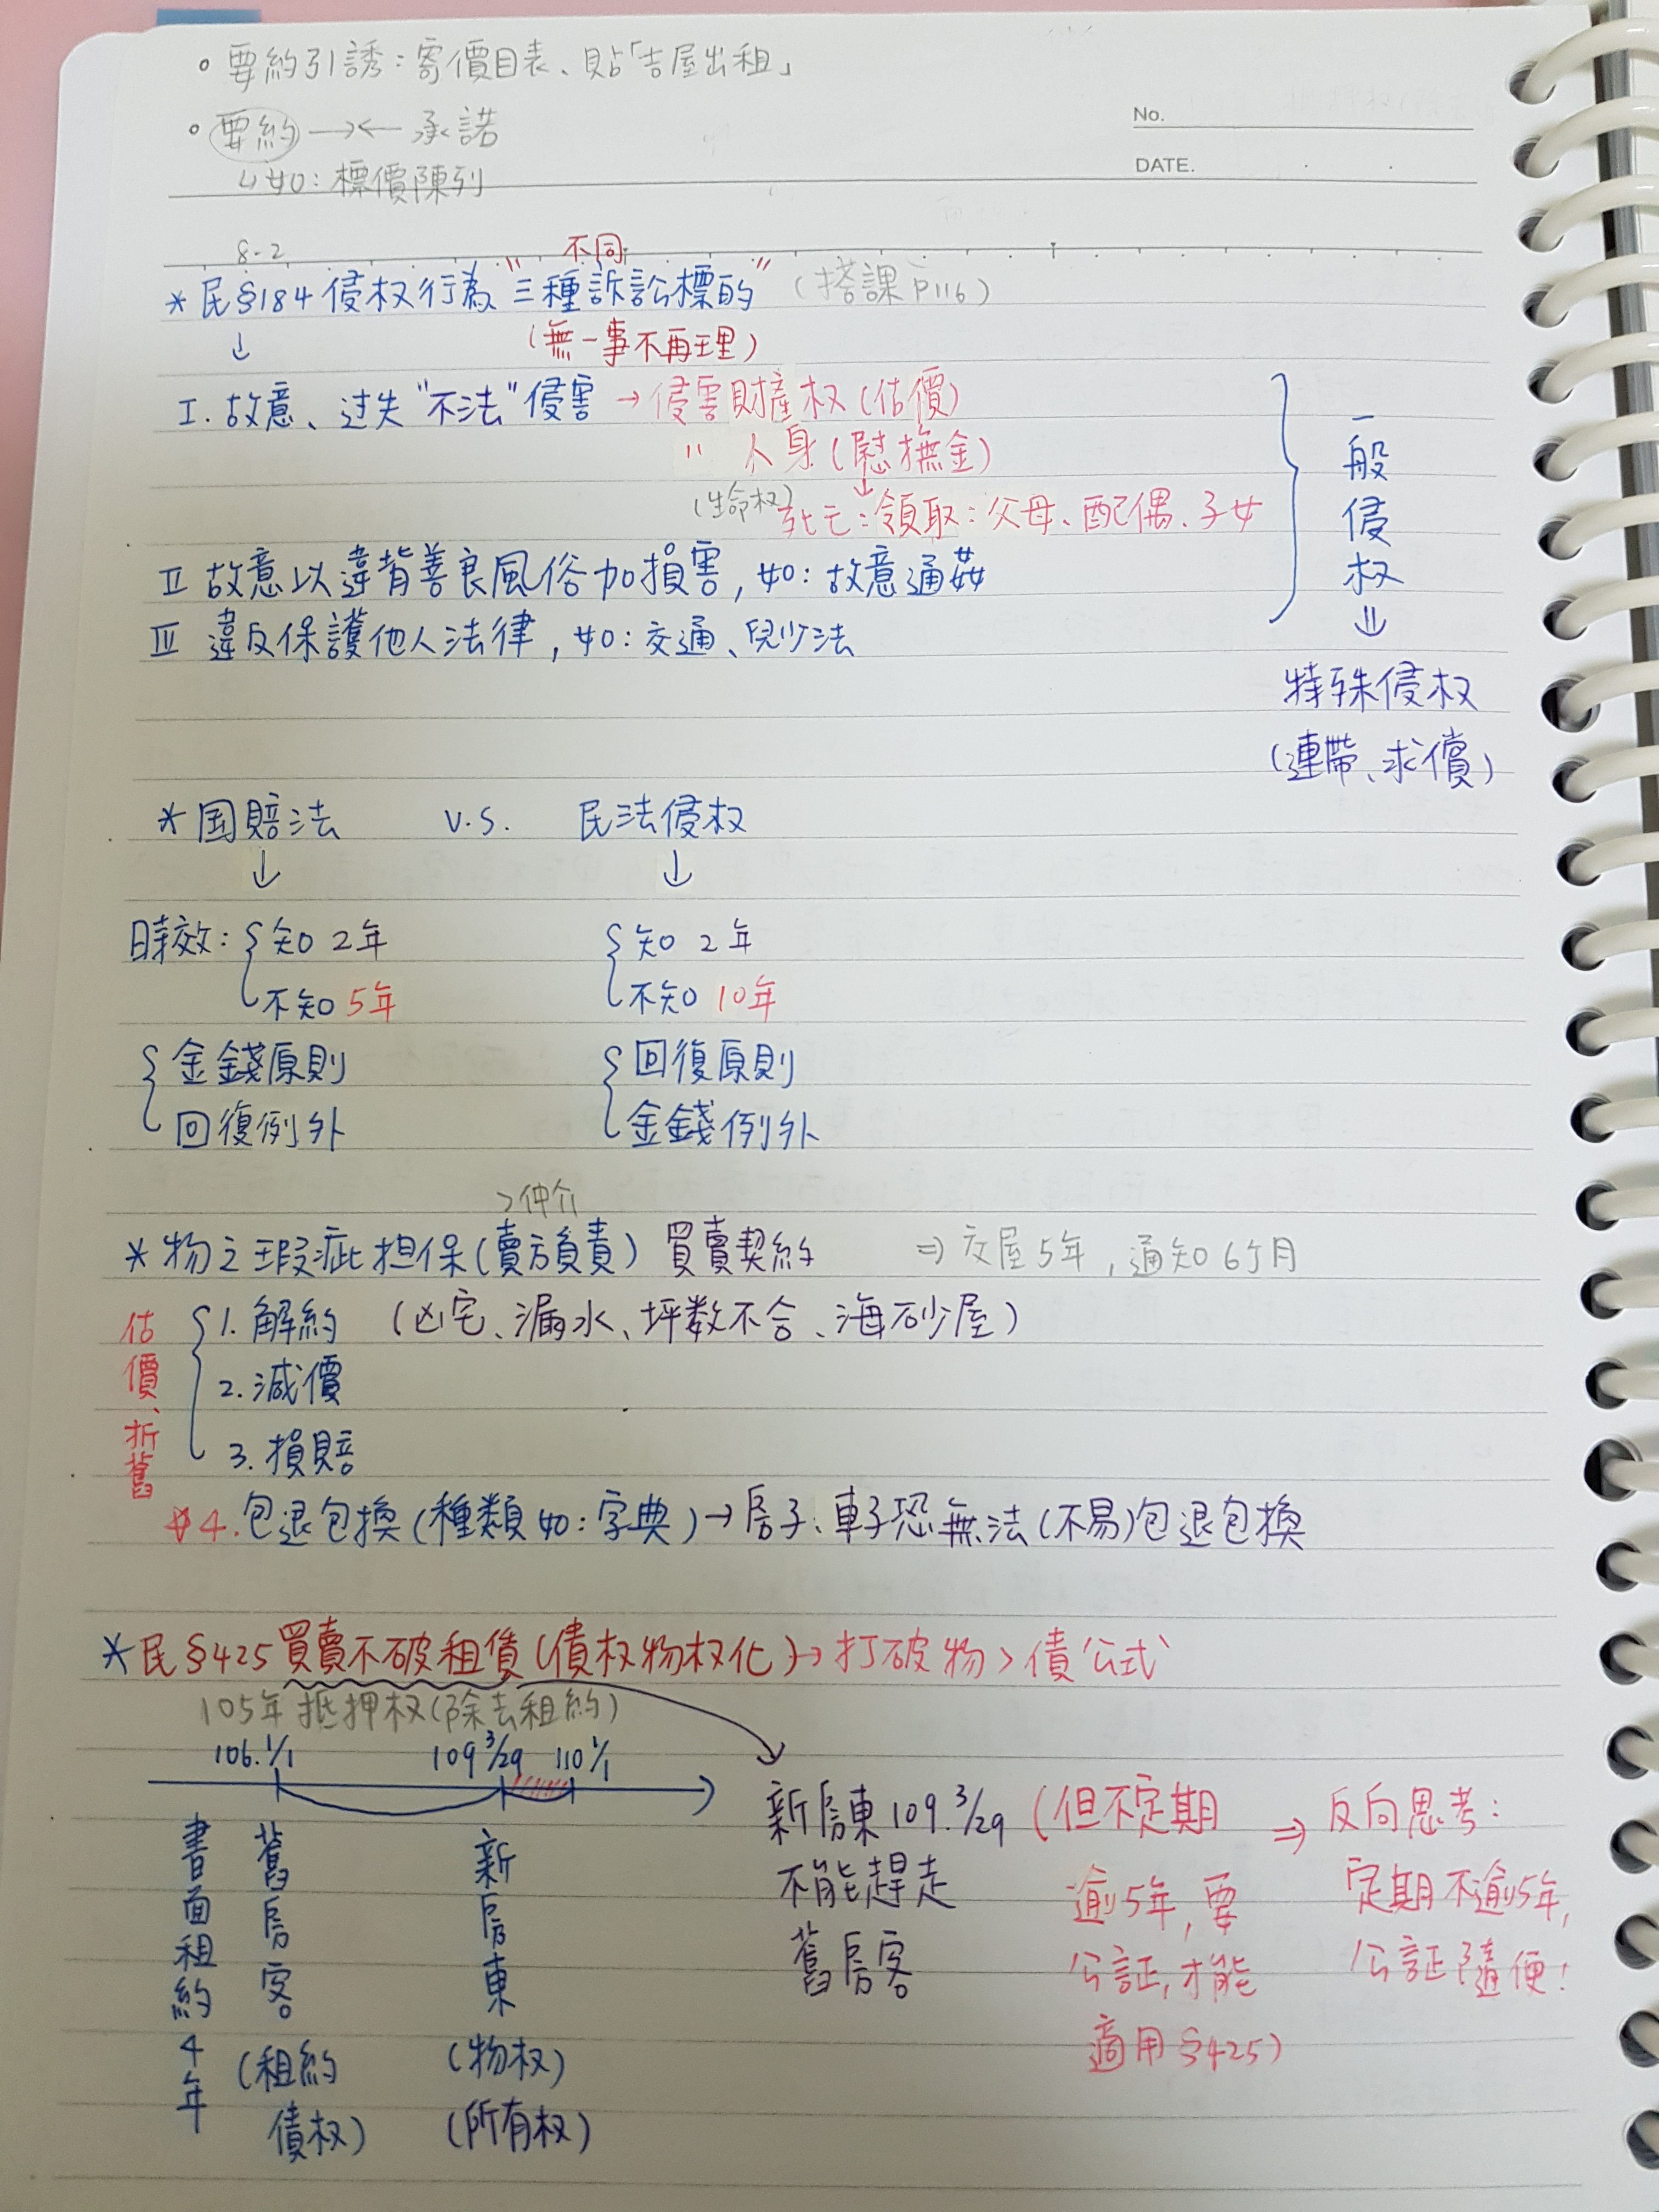 。要約引誘：寄價目表、貼「吉屋出租」
。要約 →← 承諾
↳如：標價陳列
No.
DATE.
8-2
不同
*民§184侵权行為"三種訴訟標的"(搭課P116)
↓ (無一事不再理)
I. 故意、过失"不法"侵害→侵害財產权(估價)
" 人身(慰撫金)
↓
(生命权)死亡：領取：父母、配偶、子女
II 故意以違背善良風俗加損害,如：故意通姦
III 違反保護他人法律,如：交通、兒少法
一般侵权
⇓
特殊侵权
(連帶、求償)
*国賠法 v.s. 民法侵权
↓ ↓
時效：{知2年 {知2年
不知5年 不知10年
{金錢原則 {回復原則
回復例外 金錢例外
>仲介
*物之瑕疵担保(賣方負責) 買賣契約 ⇒交屋5年,通知6个月
估價、折舊
1. 解約 (凶宅、漏水、坪数不合、海砂屋)
2. 減價
3. 損賠
*4. 包退包換(種類如：字典)→房子、車子恐無法(不易)包退包換
*民§425買賣不破租賃(債权物权化)→打破物>債公式
105年抵押权(除去租約)
106.1/1 109 3/29 110 1/1
書面租約4年
舊房客
(租約
債权)
新房東
(物权)
(所有权)
新房東109.3/29
不能趕走
舊房客
(但不定期
逾5年,要
公証,才能
適用§425)
⇒反向思考：
定期不逾5年,
公証隨便！